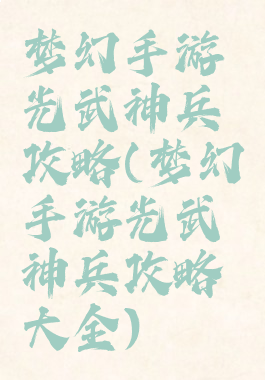 梦幻手游
光武神兵
攻略(梦幻
手游光武
神兵攻略
大全)